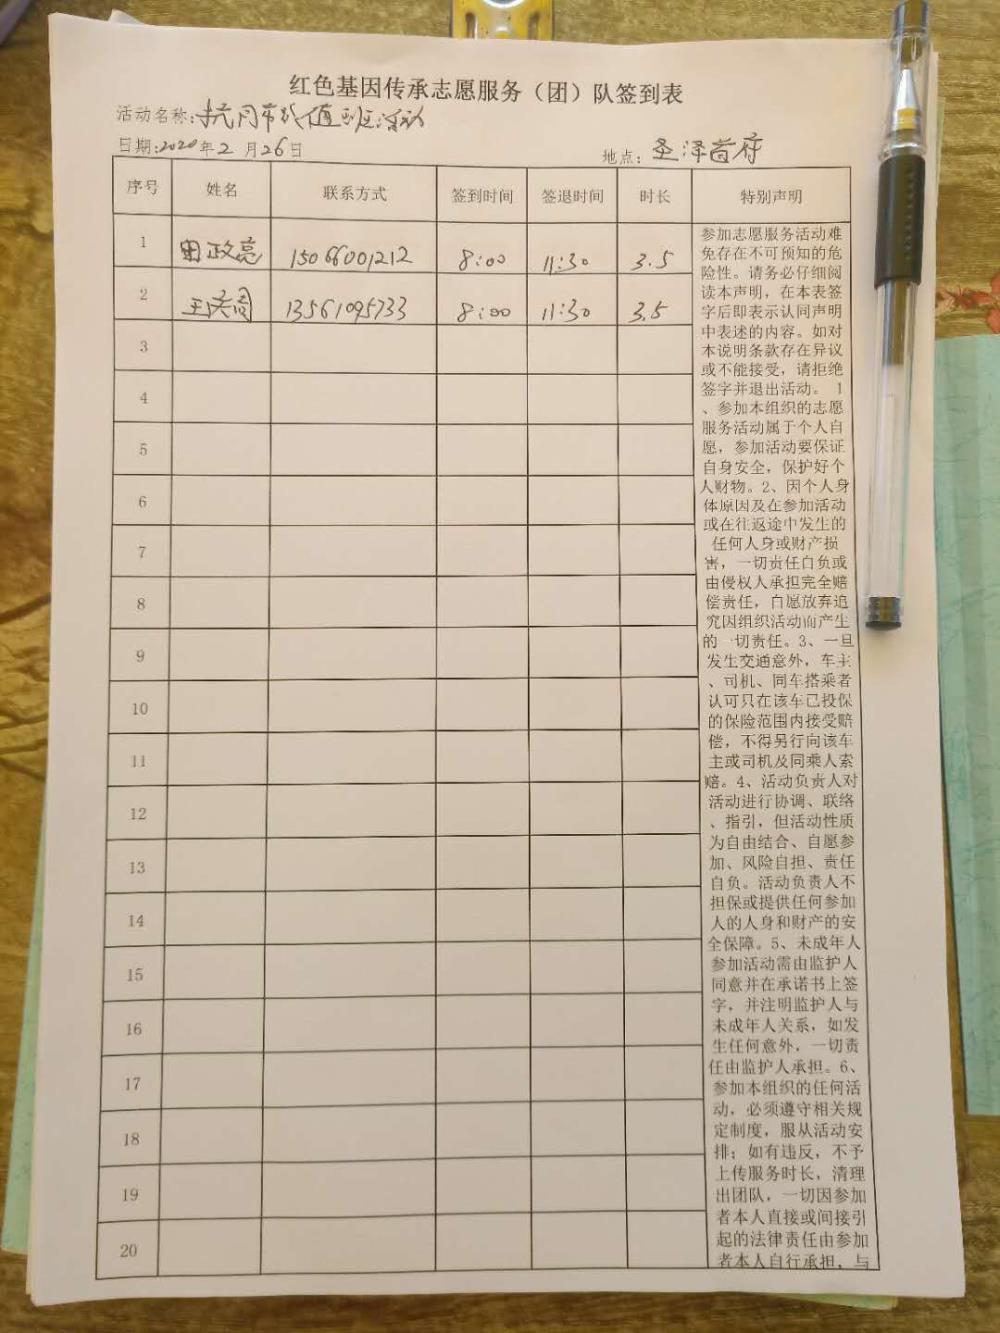 红色基因传承志愿服务（团）队签到表
活动名称:抗同市战值班活动
日期:2020年2月26日 地点:圣泽首府
序号 姓名 联系方式 签到时间 签退时间 时长 特别声明
1 田政亮 15066001212 8:00 11:30 3.5
2 13561095733 8:00 11:30 3.5
3
4
5
6
7
8
9
10
11
12
13
14
15
16
17
18
19
20
参加志愿服务活动难
免存在不可预知的危
险性。请务必仔细阅
读本声明，在本表签
字后即表示认同声明
中表述的内容。如对
本说明条款存在异议
或不能接受，请拒绝
签字并退出活动。 1
、参加本组织的志愿
服务活动属于个人自
愿，参加活动要保证
自身安全，保护好个
人财物。2、因个人身
体原因及在参加活动
或在往返途中发生的
任何人身或财产损
害，一切责任自负或
由侵权人承担完全赔
偿责任，自愿放弃追
究因组织活动而产生
的一切责任。3、一旦
发生交通意外，车主
、司机、同车搭乘者
认可只在该车已投保
的保险范围内接受赔
偿，不得另行向该车
主或司机及同乘人索
赔。4、活动负责人对
活动进行协调、联络
、指引，但活动性质
为自由结合、自愿参
加、风险自担、责任
自负。活动负责人不
担保或提供任何参加
人的人身和财产的安
全保障。5、未成年人
参加活动需由监护人
同意并在承诺书上签
字，并注明监护人与
未成年人关系，如发
生任何意外，一切责
任由监护人承担。6、
参加本组织的任何活
动，必须遵守相关规
定制度，服从活动安
排；如有违反，不予
上传服务时长，清理
出团队，一切因参加
者本人直接或间接引
起的法律责任由参加
者本人自行承担，与